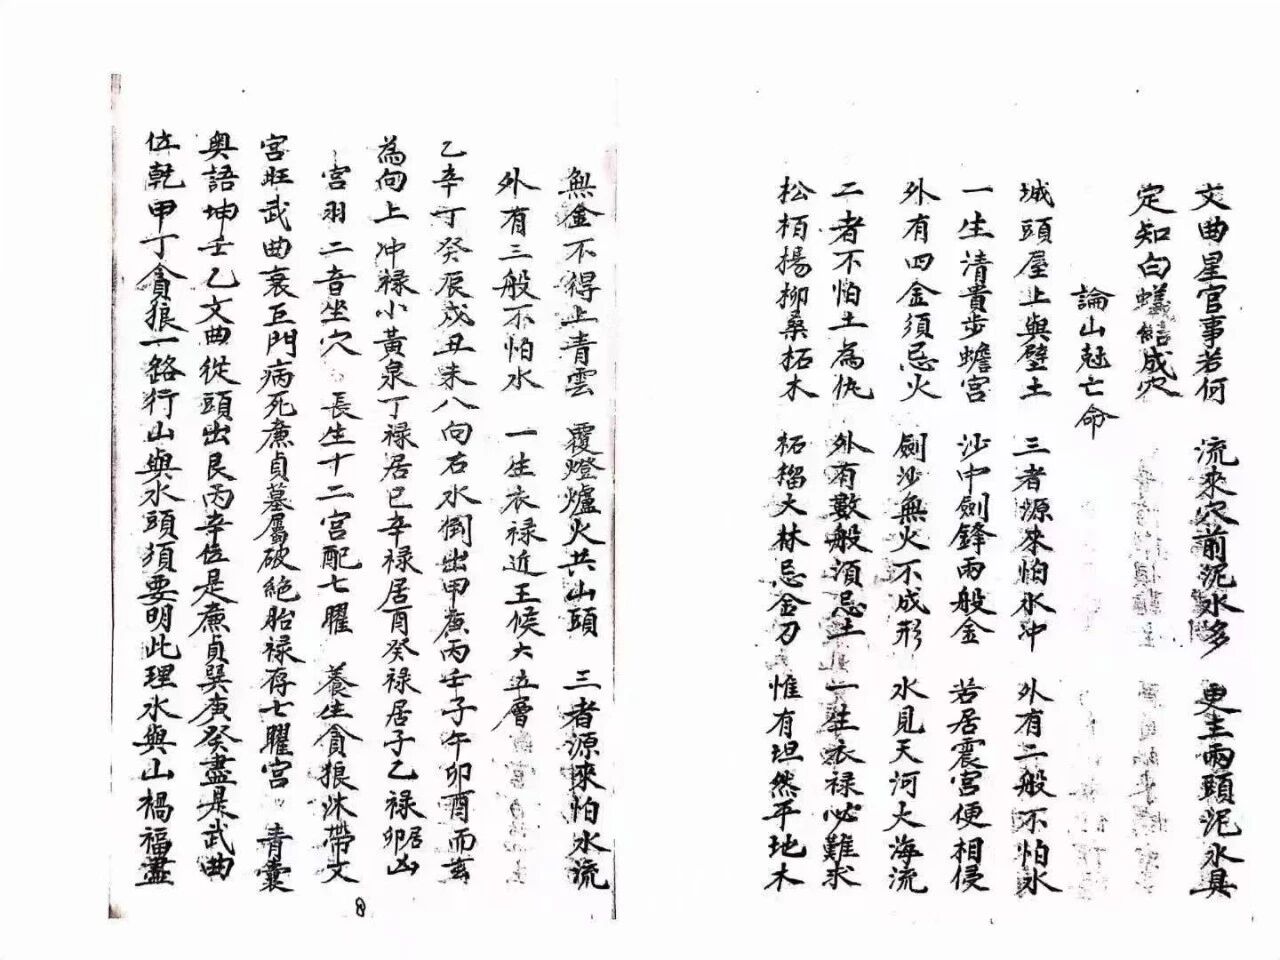 文曲星官事若何　流來穴前泥水多　更主兩頭泥水具
定知白蟻結成穴
論山尅亡命
城頭屋上與壁土　三者源來怕水冲　外有二般不怕水
一生清貴步蟾宮　沙中劍鋒兩般金　若居震宮便相侵
外有四金須忌火　劍沙無火不成形　水見天河大海流
二者不怕土為仇　外有數般須忌土　一生衣祿必難求
松栢楊柳桑柘木　柘榴大林忌金刀　惟有坦然平地木
無金不得上青雲　覆燈爐火共山頭　三者源來怕水流
外有三般不怕水　一生衣祿近王候六五層
乙辛丁癸辰戌丑未八向右水倒出甲庚丙壬子午卯酉而玄
為向上冲祿小黃泉丁祿居巳辛祿居酉癸祿居子乙祿居卯凶
宮羽二音坐穴　長生十二宮配七曜　養生貪狼沐帶文
宮旺武曲衰巨門病死廉貞墓屬破絕胎祿存七曜宮　青囊
奧語坤壬乙文曲從頭出艮丙辛位是廉貞巽庚癸盡是武曲
位乾甲丁貪狼一路行山與水頭須要明此理水與山禍福盡
8